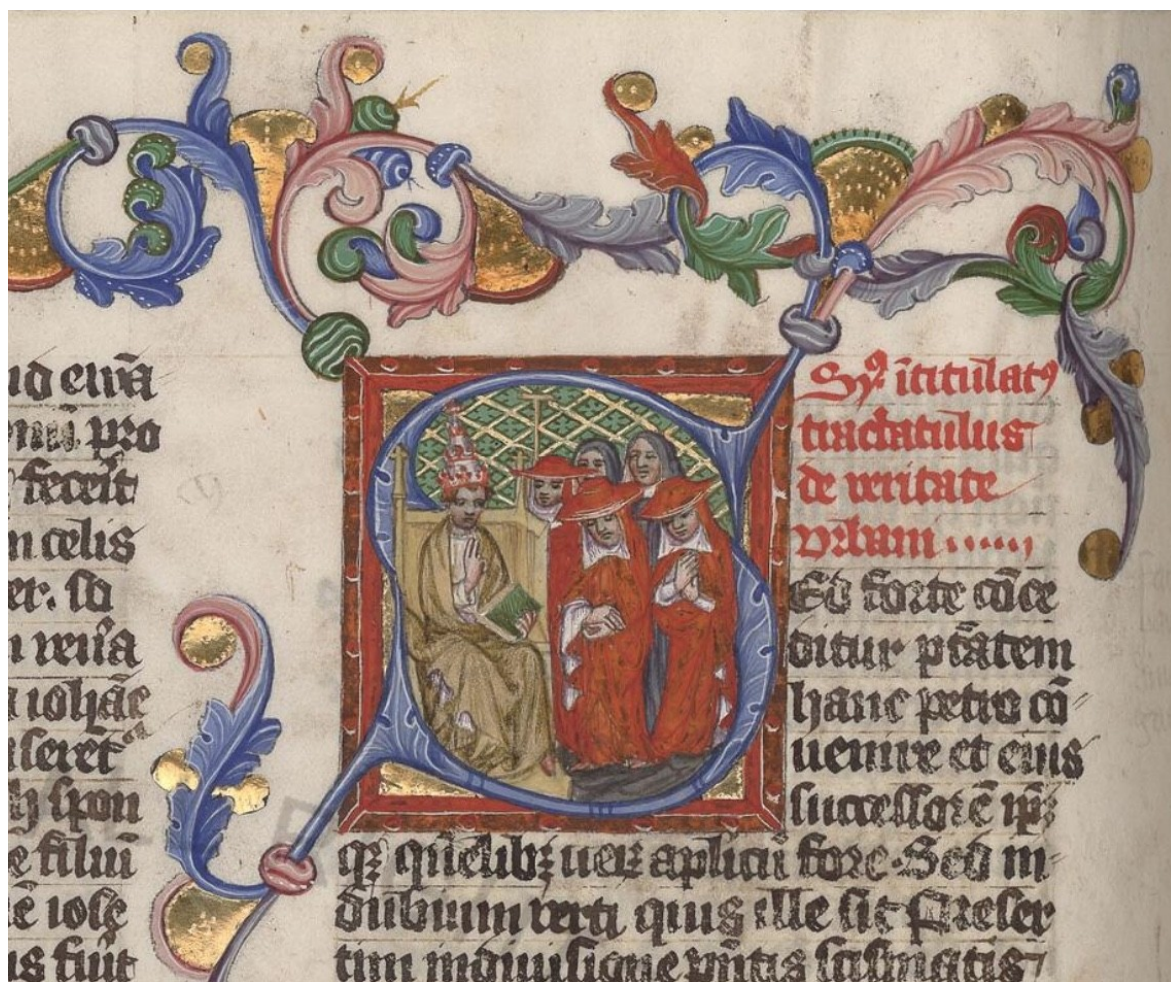 id eiu̅a
pro
fecerit
n celis
et. sd
n reu̅sa
a ioha̅e
seret
h spon
e filiu̅
e̅ iose
is fuit
Sy⁹ i̅titulat⁹
tractatulus
de veritate
vrbani .....
Ed forte co̅ce
ditur p̅tatem
hanc petro co̅
uenire et eius
successore̅ ip̅
qz que̅libꝫ ueꝝ aplicu̅ fore. Sed in
dubium verti quis ille sit Preser
tim inquisicione pn̅tis scismatis